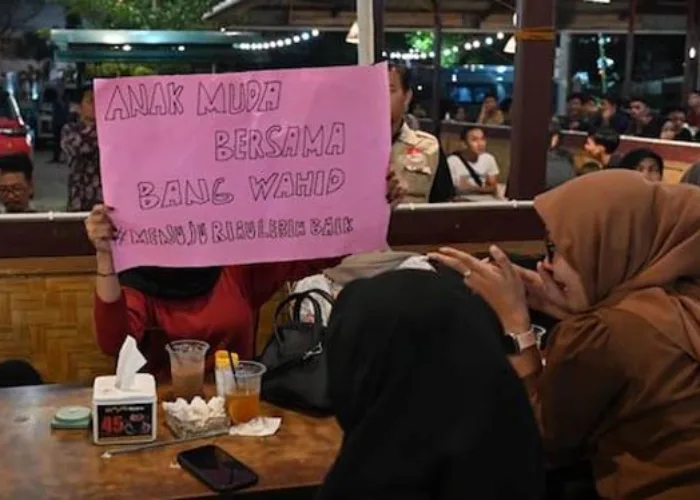 ANAK MUDA
BERSAMA
BANG WAHID
#MENUJU RIAU LEBIH BAIK
45